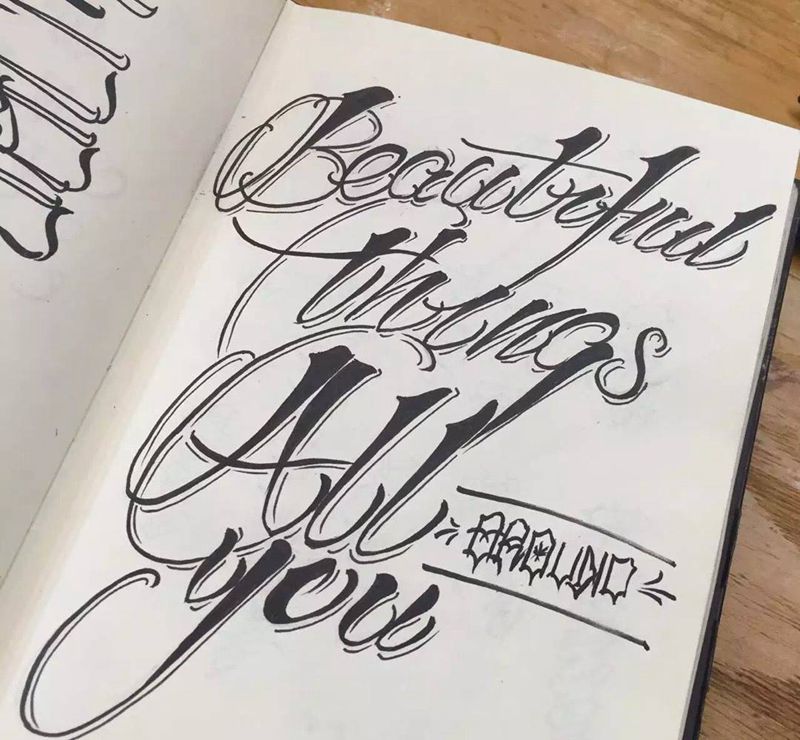 Beautiful
things
All
AROUND
you